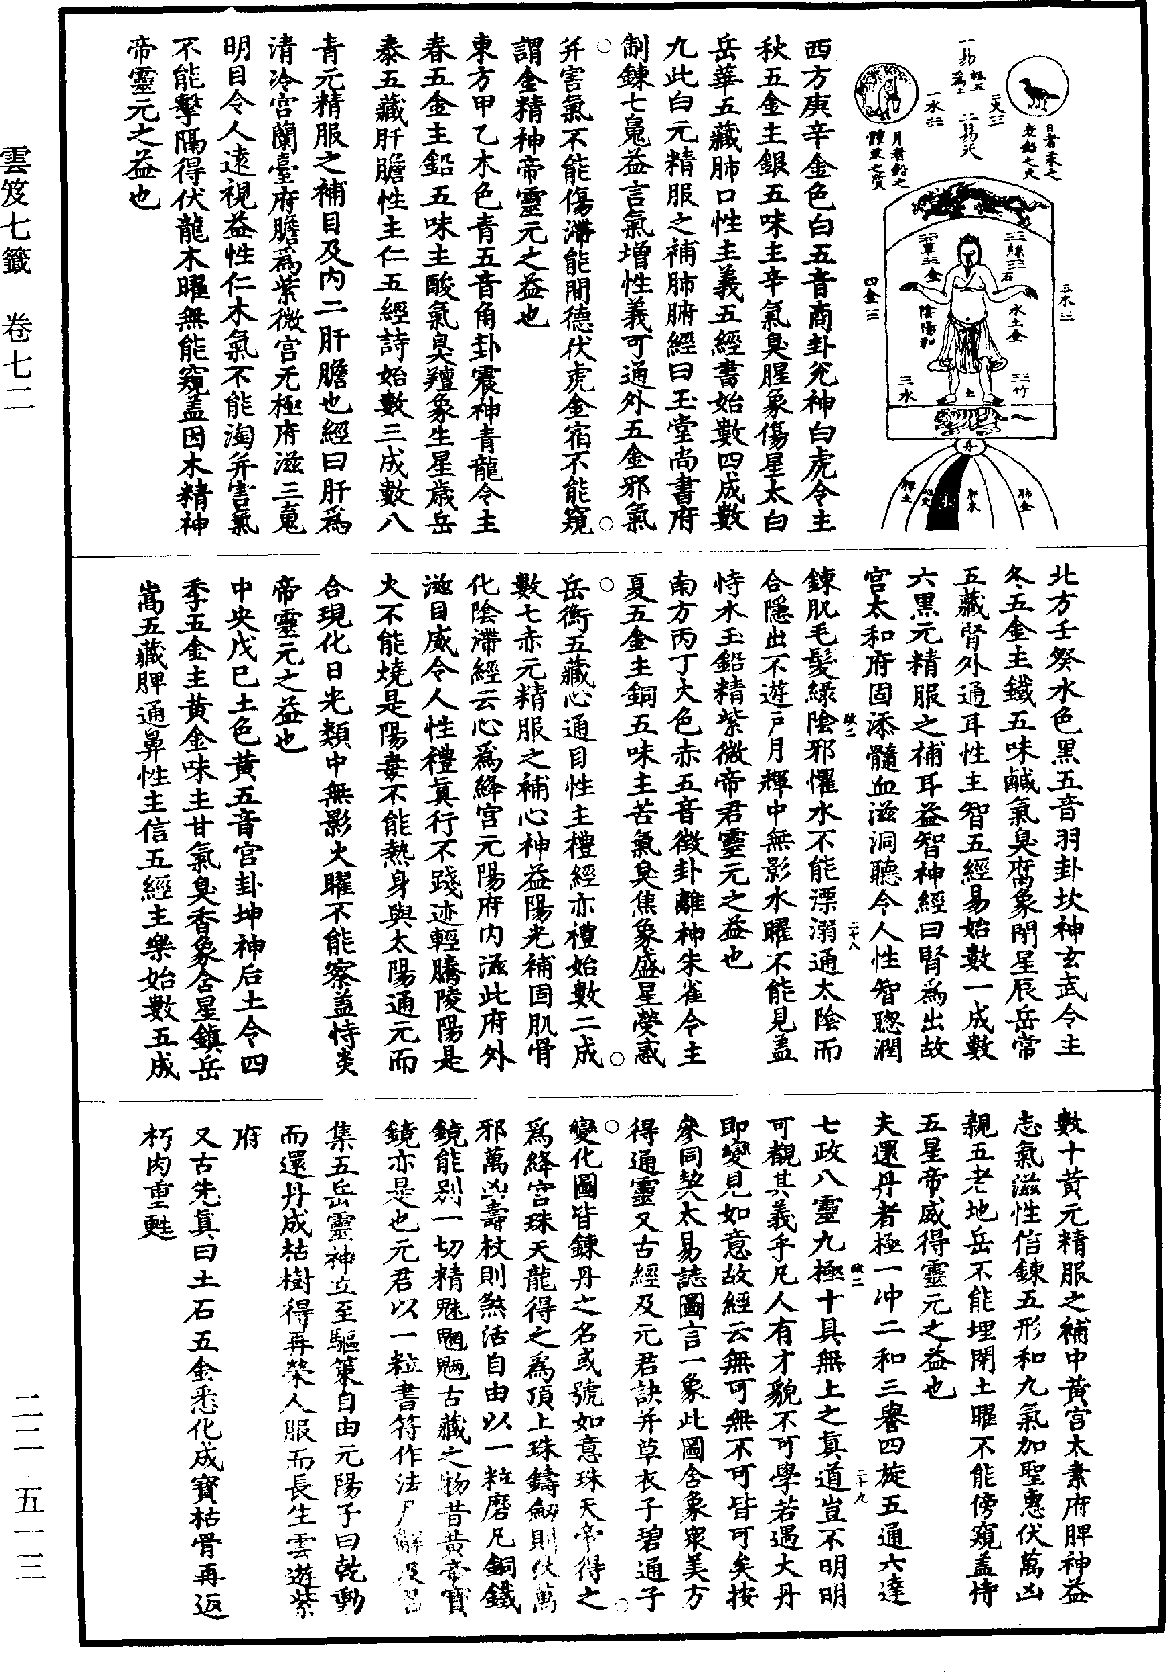 雲笈七籤　卷七二
二二—五一三
日者亲之
老鉛之火
月者鉛之
體衆之質
二火三
一水三
五木三
四金三
水土金
陰陽和
三水
竹
丹
西方庚辛金色白五音商卦兊神白虎令主
秋五金主銀五味主辛氣臭腥象傷星太白
岳華五藏肺口性主義五經書始數四成數
九此白元精服之補肺腑經曰玉堂尚書府
制鍊七䰟益言氣增性義可通外五金邪氣
并害氣不能傷滯能開德伏虎金宿不能窺
謂金精神帝靈元之益也
東方甲乙木色青五音角卦震神青龍令主
春五金主鉛五味主酸氣臭羶象生星歲岳
泰五藏肝膽性主仁五經詩始數三成數八
青元精服之補目及內二肝膽也經曰肝爲
清泠宮蘭臺府膽爲紫微宮无極府滋三䰟
明目令人遠視益性仁木氣不能淘并害氣
不能擊隔得伏龍木曜無能窺盖因木精神
帝靈元之益也
北方壬癸水色黑五音羽卦坎神玄武令主
冬五金主鐵五味鹹氣臭腐象閇星辰岳常
五藏腎外通耳性主智五經易始數一成數
六黑元精服之補耳益智神經曰腎爲出故
宮太和府固添髓血滋洞聽令人性智聰潤
鍊肌毛髮綠陰邪懼水不能漂溺通太陰而
合隱出不遊戶月輝中無影水曜不能見盖
恃水玉鉛精紫微帝君靈元之益也
南方丙丁火色赤五音徵卦離神朱雀令主
夏五金主銅五味主苦氣臭焦象盛星熒惑
岳衡五藏心通目性主禮經亦禮始數二成
數七赤元精服之補心神益陽光補固肌骨
化陰滯經云心爲絳宮元陽府內滋此府外
滋目威令人性禮真行不踐迹輕騰陵陽是
火不能燒是陽毒不能熱身與太陽通元而
合現化日光類中無影火曜不能察盖恃炎
帝靈元之益也
中央戊已土色黃五音宮卦坤神后土令四
季五金主黃金味主甘氣臭香象含星鎮岳
嵩五藏脾通鼻性主信五經主樂始數五成
數十黃元精服之補中黃宮太素府脾神益
志氣滋性信鍊五形和九氣加聖惠伏萬凶
親五老地岳不能埋閉土曜不能傍窺盖恃
五星帝威得靈元之益也
夫還丹者極一冲二和三審四旋五通六達
七政八靈九極十具無上之真道豈不明明
可觀其義乎凡人有才貌不可學若遇大丹
即變見如意故經云無可無不可皆可矣按
參同契太易誌圖言一象此圖含象衆美方
得通靈又古經及元君訣并草衣子碧通子
變化圖皆鍊丹之名或號如意珠天帝得之
爲絳宮珠天龍得之爲頂上珠鑄劒則伏萬
邪萬凶壽杖則煞活自由以一粒磨凡銅鐵
鏡能别一切精魅魍魎古藏之物昔黃帝寶
鏡亦是也元君以一粒書符作法尸解
集五岳靈神立至驅策自由元陽子曰乾動
而還丹成枯樹得再榮人服而長生雲遊紫
府
又古先真曰土石五金悉化成寶枯骨再返
朽肉重甦